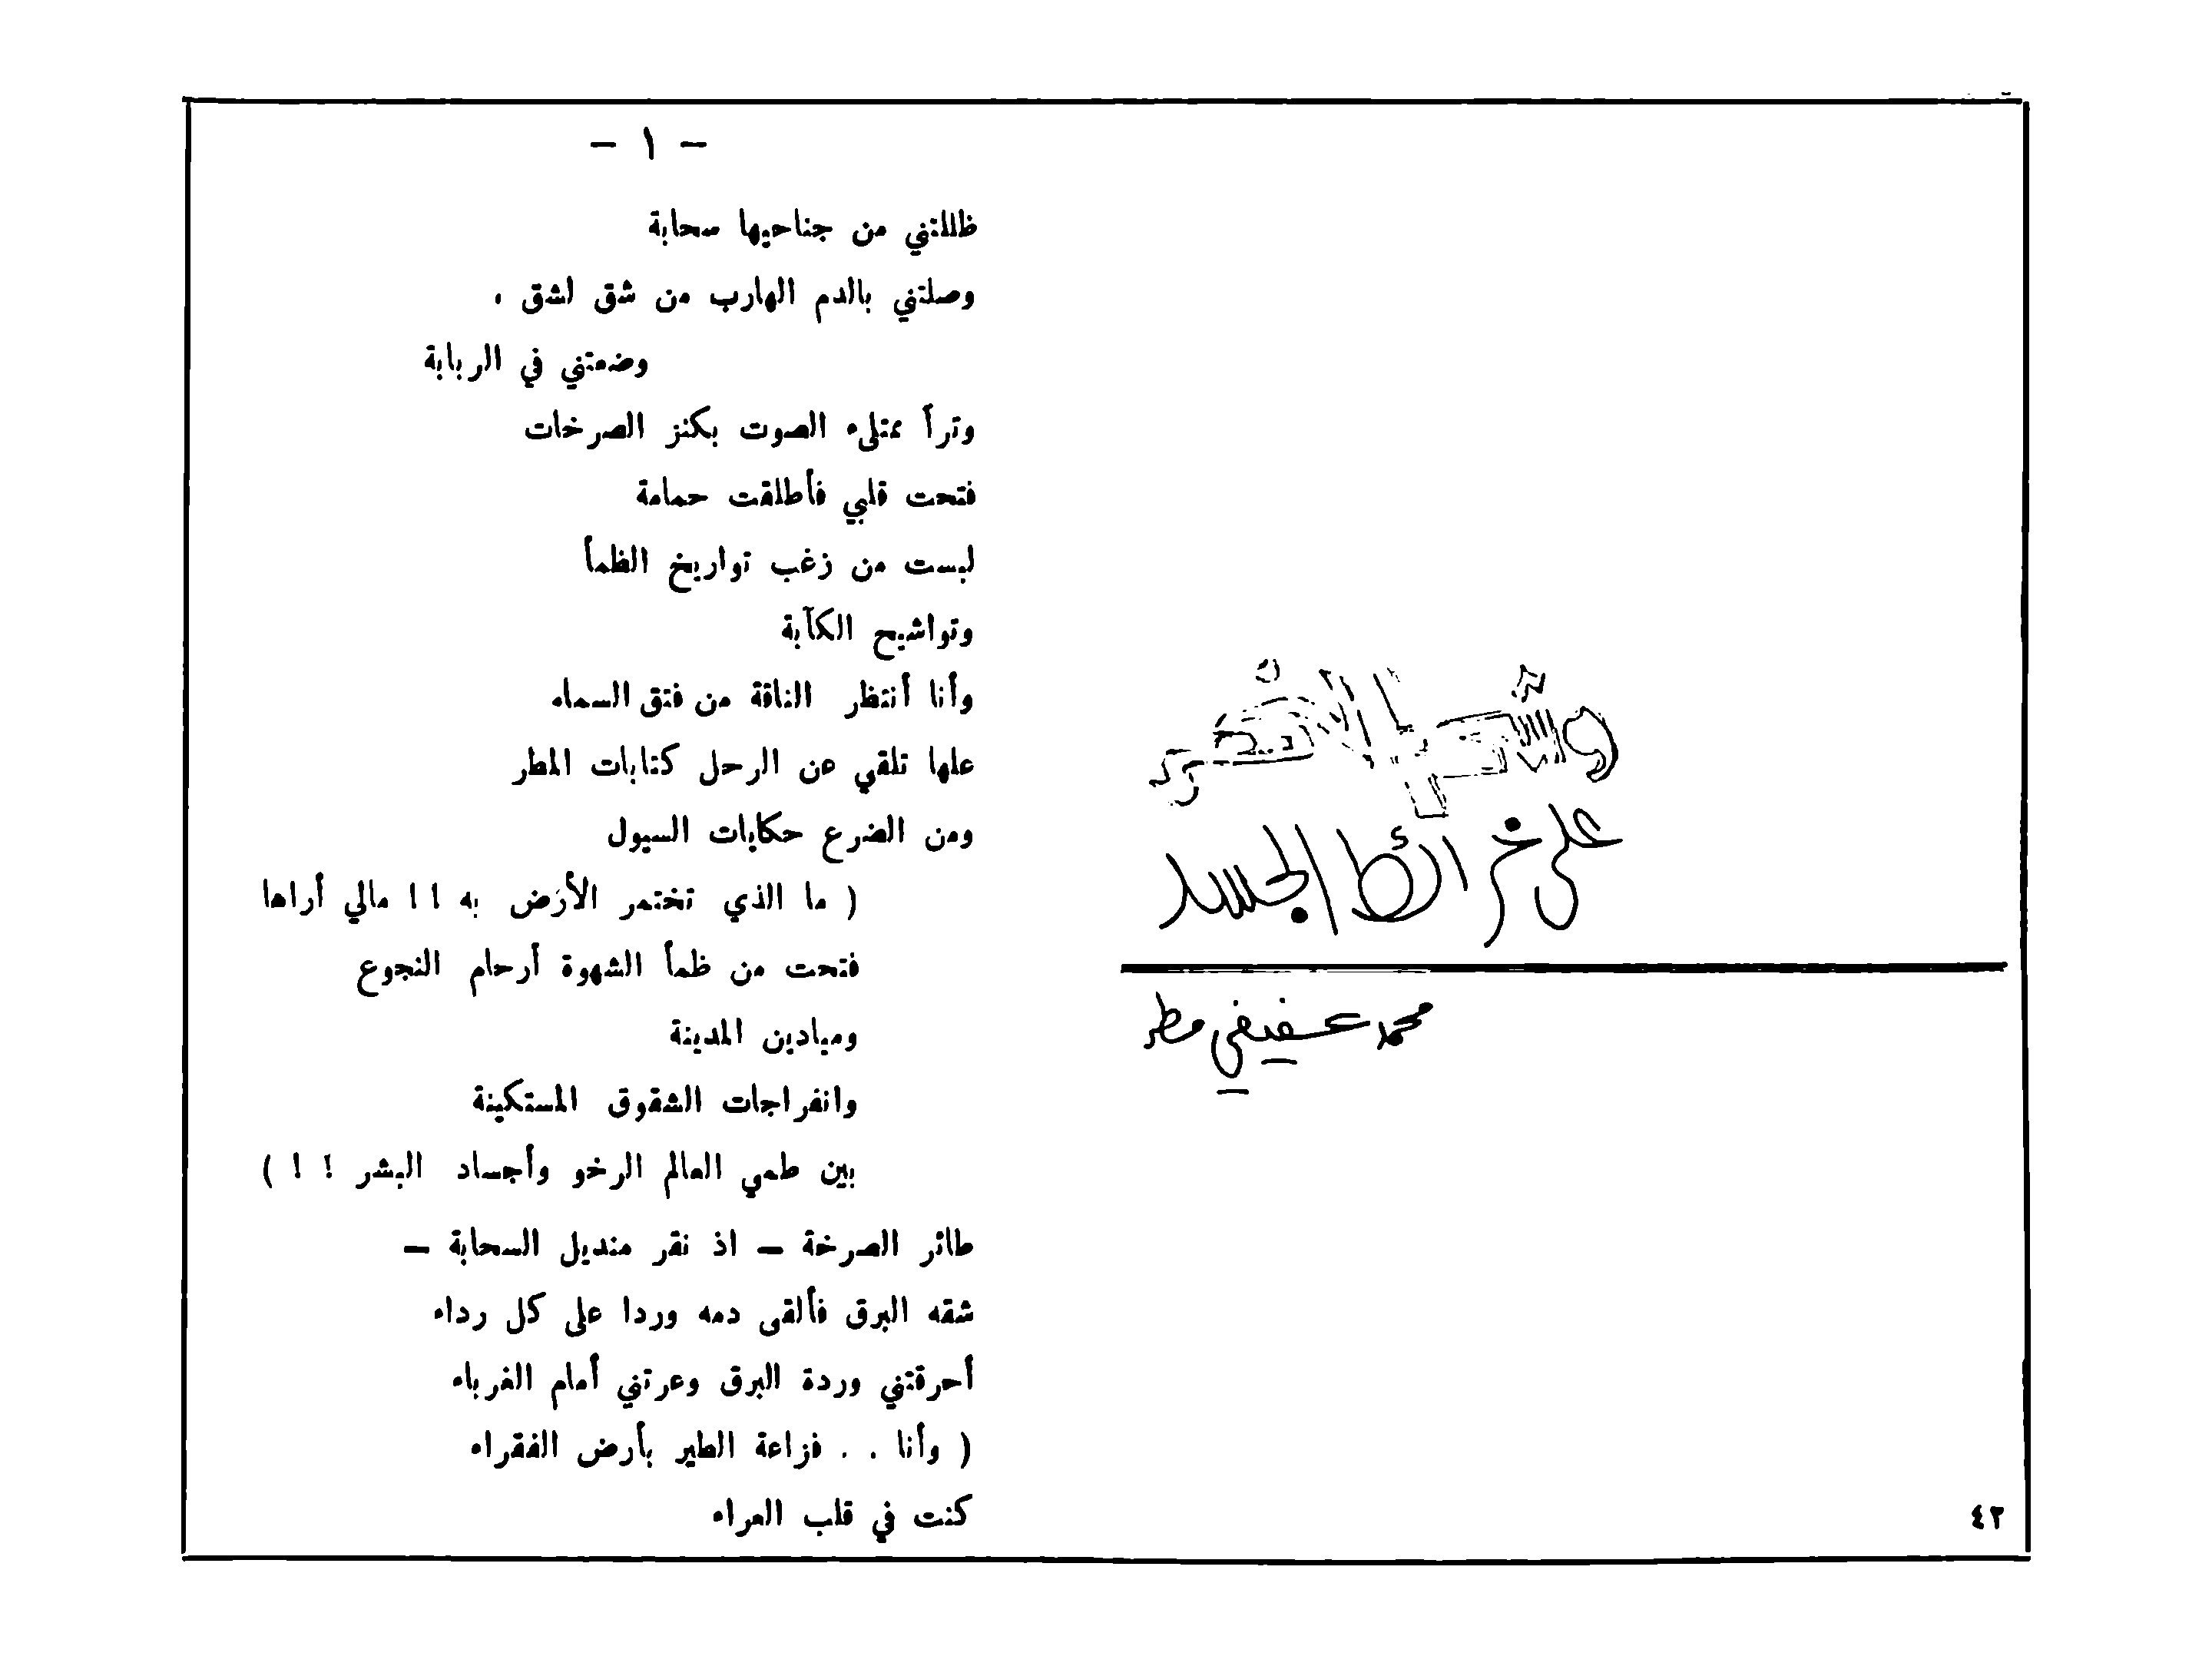 وشم النهر
على خرائط الجسد
محمد عفيفي مطر
٤٢
- ١ -
ظللتني من جناحيها سحابة
وصلتني بالدم الهارب من شق لشق ،
وضمتني في الربابة
وترأ ممتلىء الصوت بكنز الصرخات
فتحت قلبي فأطلقت حمامة
لبست من زغب تواريخ الظمأ
وتواشيح الكآبة
وأنا أنتظر الناقة من فتق السماء
علها تلقي عن الرحل كتابات المطر
ومن الضرع حكايات السيول
( ما الذي تختمر الأرض به !! مالي أراها
فتحت من ظمأ الشهوة أرحام النجوع
وميادين المدينة
وانفراجات الشقوق المستكينة
بين طمي العالم الرخو وأجساد البشر ! ! )
طائر الصرخة – اذ نقر منديل السحابة –
شقه البرق فألقى دمه وردا على كل رداء
أحرقتني وردة البرق وعرتني أمام الغرباء
( وأنا . . فزاعة الطير بأرض الفقراء
كنت في قلب العراء